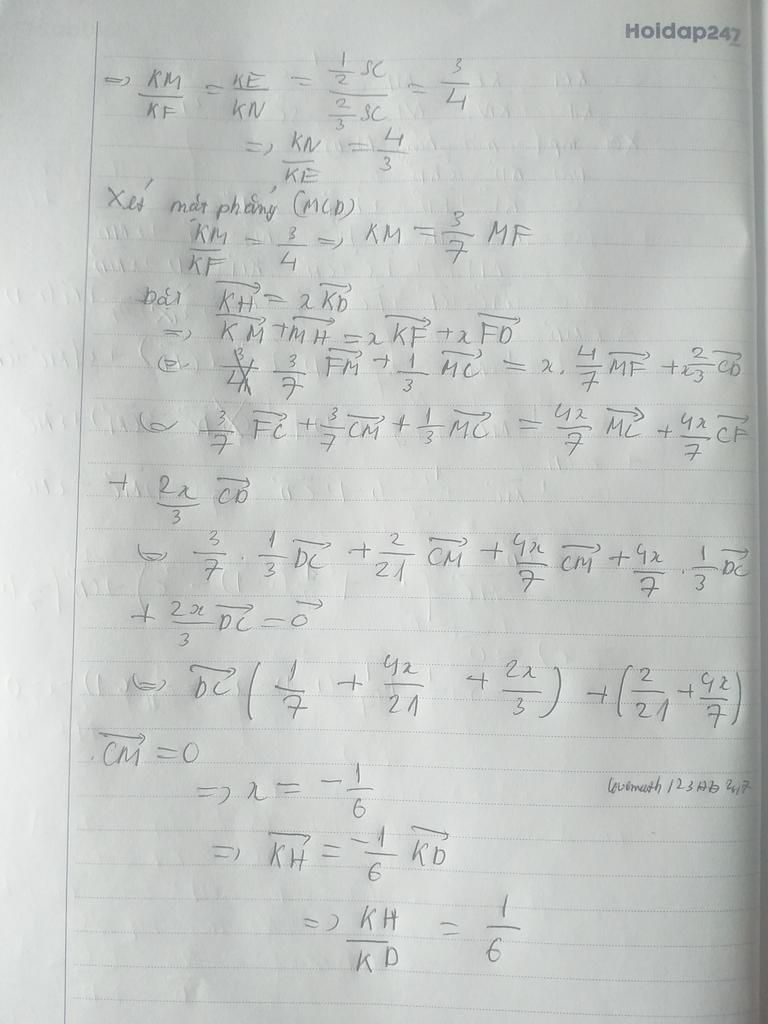 Hoidap247
=> KM/KF = KE/KN = (1/2 SC)/(2/3 SC) = 3/4
=> KN/KE = 4/3
Xét mặt phẳng (MCD)
KM/KF = 3/4 => KM = 3/7 MF
Đặt \overrightarrow{KH} = x\overrightarrow{KD}
=> \overrightarrow{KM} + \overrightarrow{MH} = x\overrightarrow{KF} + x\overrightarrow{FD}
<=> 3/7 \overrightarrow{FM} + 1/3 \overrightarrow{MC} = x . 4/7 \overrightarrow{MF} + x 2/3 \overrightarrow{CD}
<=> 3/7 \overrightarrow{FC} + 3/7 \overrightarrow{CM} + 1/3 \overrightarrow{MC} = 4x/7 \overrightarrow{MC} + 4x/7 \overrightarrow{CF}
+ 2x/3 \overrightarrow{CD}
<=> 3/7 . 1/3 \overrightarrow{DC} + 2/21 \overrightarrow{CM} + 4x/7 \overrightarrow{CM} + 4x/7 . 1/3 \overrightarrow{DC}
+ 2x/3 \overrightarrow{DC} = \overrightarrow{0}
<=> \overrightarrow{DC} (1/7 + 4x/21 + 2x/3) + (2/21 + 4x/7)
. \overrightarrow{CM} = 0
=> x = -1/6
=> \overrightarrow{KH} = -1/6 \overrightarrow{KD}
=> KH/KD = 1/6